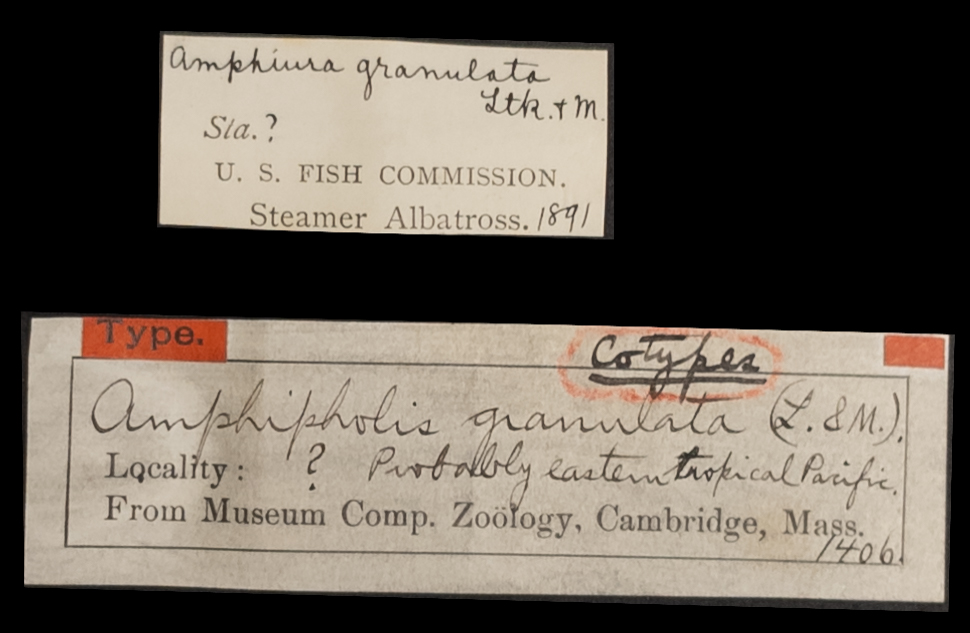 Amphiura granulata
Ltk. & M.
Sta. ?
U. S. FISH COMMISSION.
Steamer Albatross. 1891
Type.
Cotypes
Amphipholis granulata (L. & M.).
Locality: ? Probably eastern tropical Pacific.
From Museum Comp. Zoölogy, Cambridge, Mass.
1406.